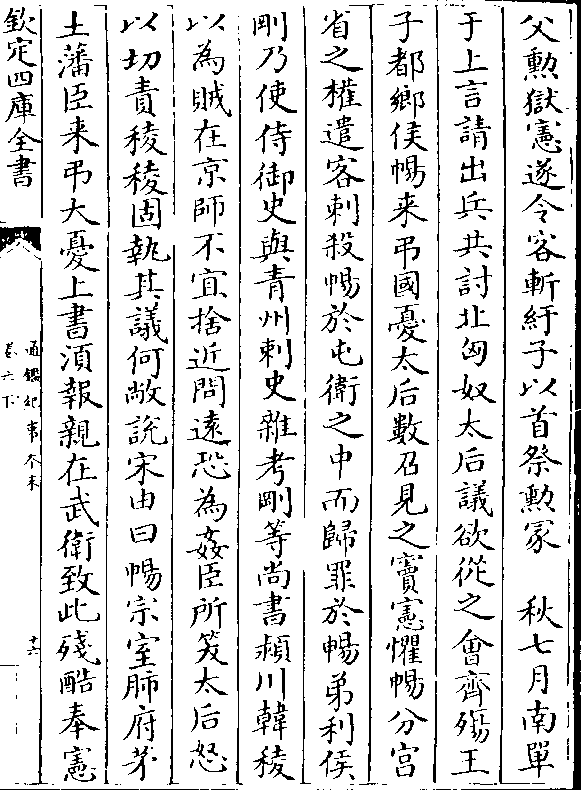 父勲獄憲遂令客斬紆子以首祭勲冢　秋七月南單
于上言請出兵共討北匈奴太后議欲從之會齊殤王
子都鄉侯暢来弔國憂太后數召見之竇憲懼暢分宫
省之權遣客刺殺暢於屯衛之中而歸罪於暢弟利侯
剛乃使侍御史與青州刺史雜考剛等尚書潁川韓稜
以為賊在京師不宜捨近問逺恐為姦臣所笑太后怒
以切責稜稜固執其議何敞說宋由曰暢宗室肺府茅
土藩臣来弔大憂上書湏報親在武衛致此殘酷奉憲
欽定四庫全書
通鑑紀事本末
卷六下
十六